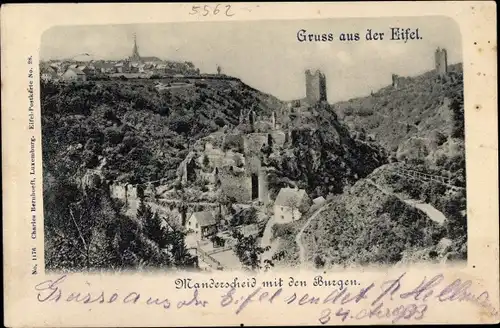 5562
Gruss aus der Eifel.
No. 1176 Charles Bernhoeft, Luxemburg. Eifel-Postkarte No. 28.
Manderscheid mit den Burgen.
Grüsse aus der Eifel sendet